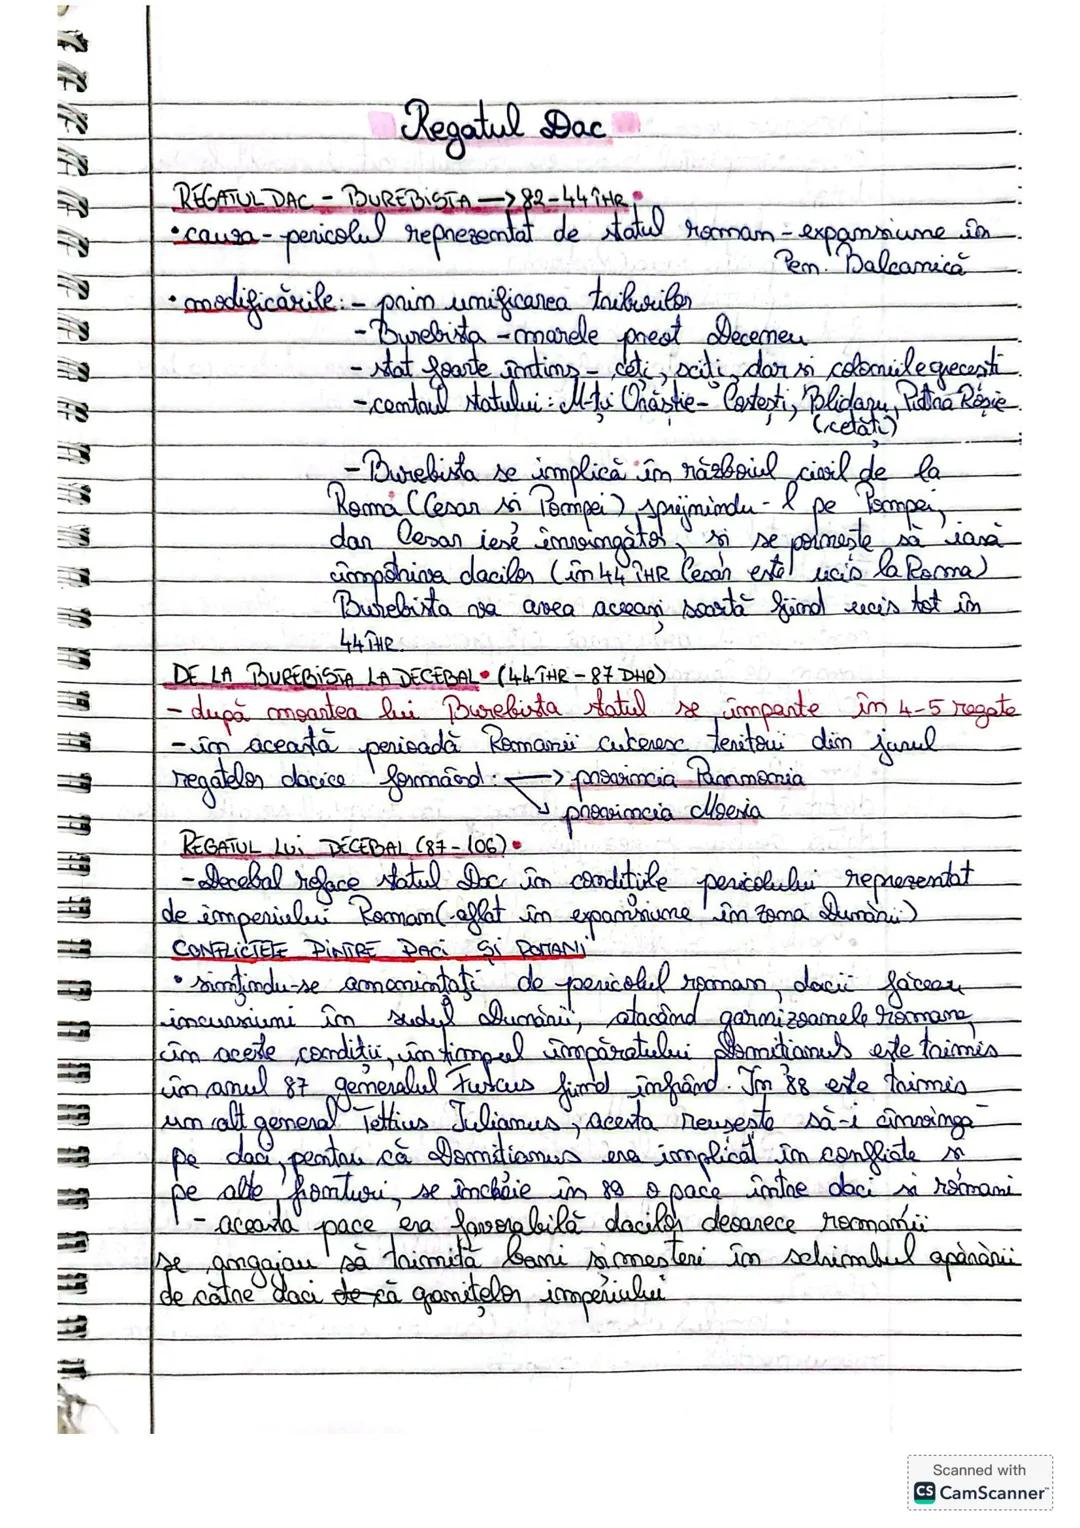 Regatul Dac
REGATUL DAC - BUREBISTA → 82-44 ÎHR
• cauza - pericolul reprezentat de statul roman - expansiune în
Pen. Balcanică
• modificările: - prin unificarea triburilor
- Burebista - marele preot Deceneu
- stat foarte întins - celți, sciți, dar si coloniile grecești
- centrul statului: M-ții Orăștie - Costești, Blidaru, Piatra Roșie
(cetăți)
- Burebista se implică în războiul civil de la
Roma (Cesar si Pompei) sprijinindu-l pe Pompei,
dar Cesar iese învingător, si se pornește să iasă
împotriva dacilor (în 44 ÎHR Cesar este ucis la Roma)
Burebista va avea aceeași soartă fiind ucis tot în
44 ÎHR.
DE LA BUREBISTA LA DECEBAL (44 ÎHR - 87 DHR)
- după moartea lui Burebista statul se împarte în 4-5 regate
- în această perioadă Romanii cuceresc teritorii din jurul
regatelor dacice formând: → provincia Pannonia
↘ provincia Moesia
REGATUL LUI DECEBAL (87-106)
- Decebal reface statul Dac în condițiile pericolului reprezentat
de imperiului Roman (aflat în expansiune în zona Dunării)
CONFLICTELE DINTRE DACI ȘI ROMANI
• simțindu-se amenințați de pericolul roman, dacii făceau
incursiuni în sudul Dunării, atacând garnizoanele romane,
în aceste condiții, în timpul împăratului Domitianus este trimis
în anul 87 generalul Fuscus fiind înfrând. În 88 este trimis
un alt general Tettius Julianus, acesta reușește să-i învingă
pe daci, pentru că Domitianus era implicat în conflicte si
pe alte fronturi, se încheie în 89 o pace între daci si romani
- aceasta pace era favorabilă dacilor deoarece romanii
se angajau să trimită bani si meșteri în schimbul apărării
de către daci granițelor imperiului
Scanned with
CS CamScanner